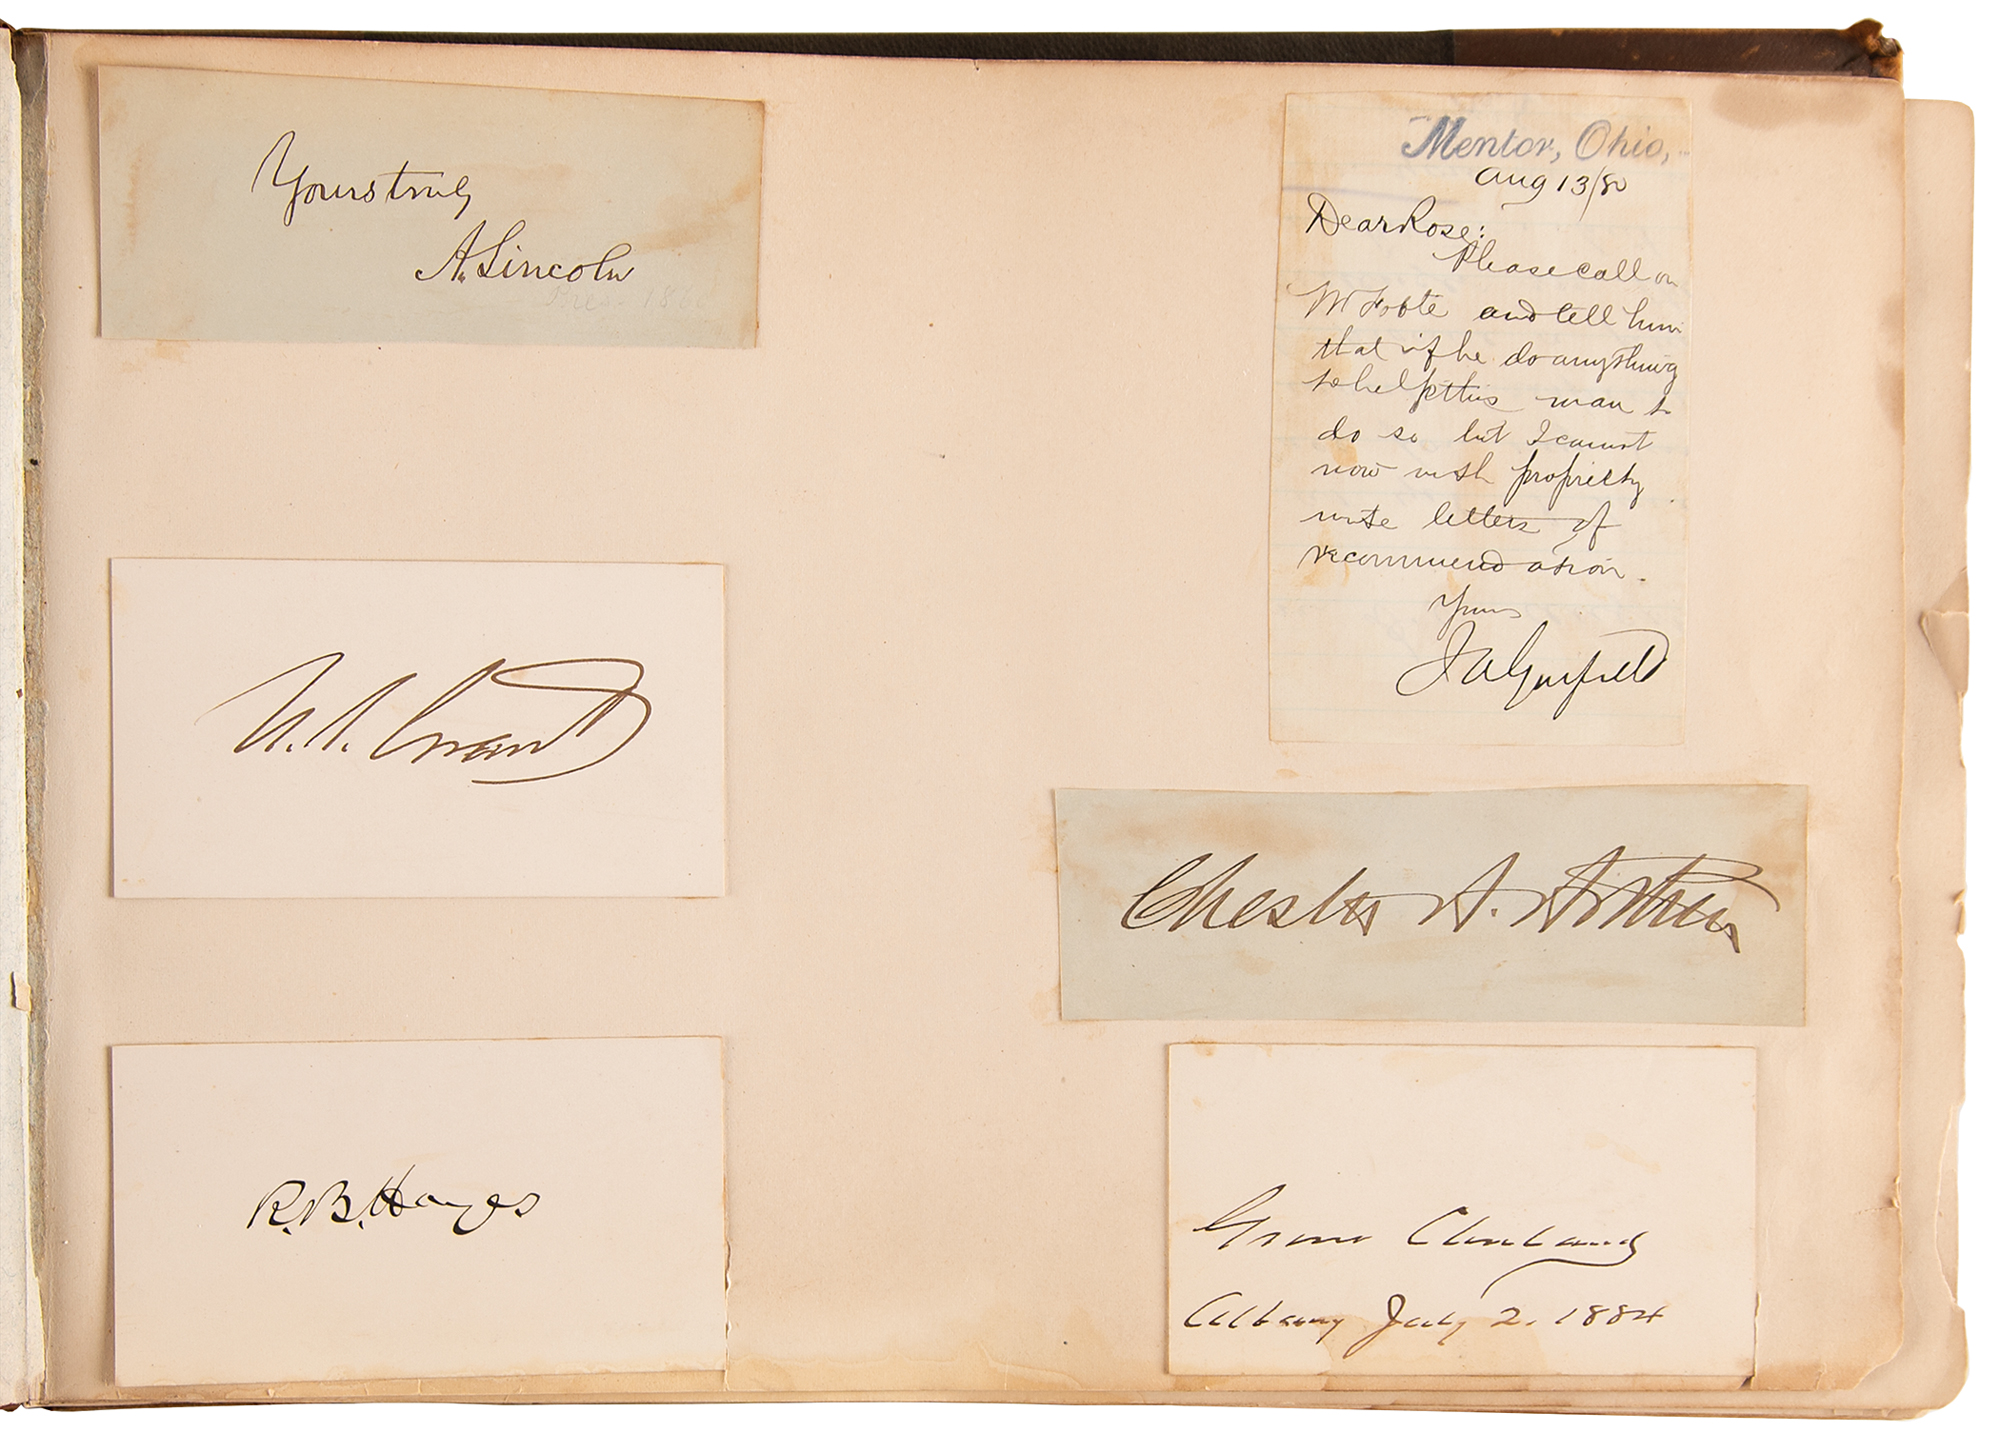 Yours truly
A. Lincoln
Pres. 186
U.S. Grant
R.B. Hayes
Mentor, Ohio,
Aug 13/80
Dear Rose:
Please call on
Mr Foote and tell him
that if he do anything
to help this man to
do so but I cannot
now with propriety
write letters of
recommendation.
Yours
J A Garfield
Chester A. Arthur
Grover Cleveland
Albany July 2, 1884